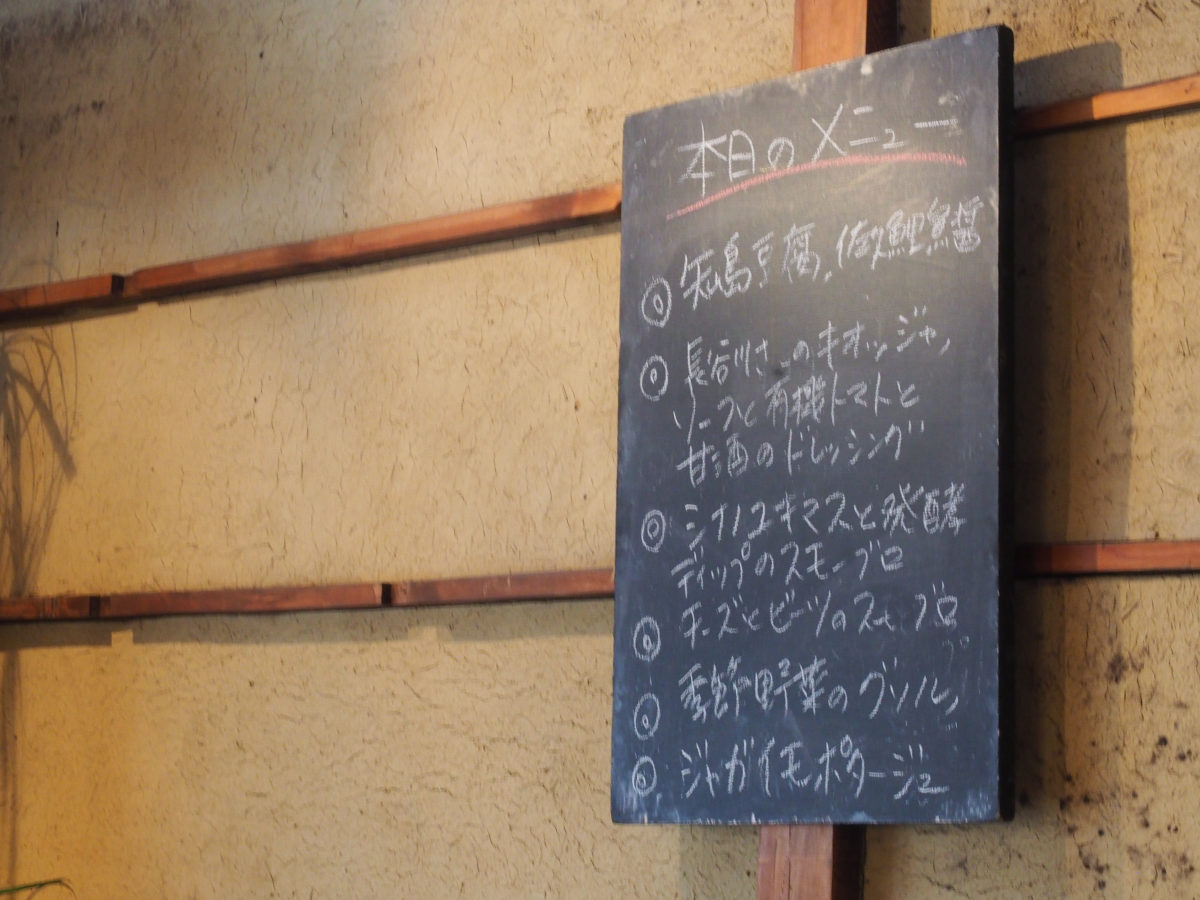 本日のメニュー
◎ 矢島豆腐、佐久鯉魚醤
◎ 長谷川さんのキオッジャ、
ソースと有機トマトと
甘酒のドレッシング
◎ シナノユキマスと発酵
ディップのスモーブロ
◎ チーズとビーツのスモーブロ
◎ 季節野菜のグリル、
◎ ジャガイモポタージュ